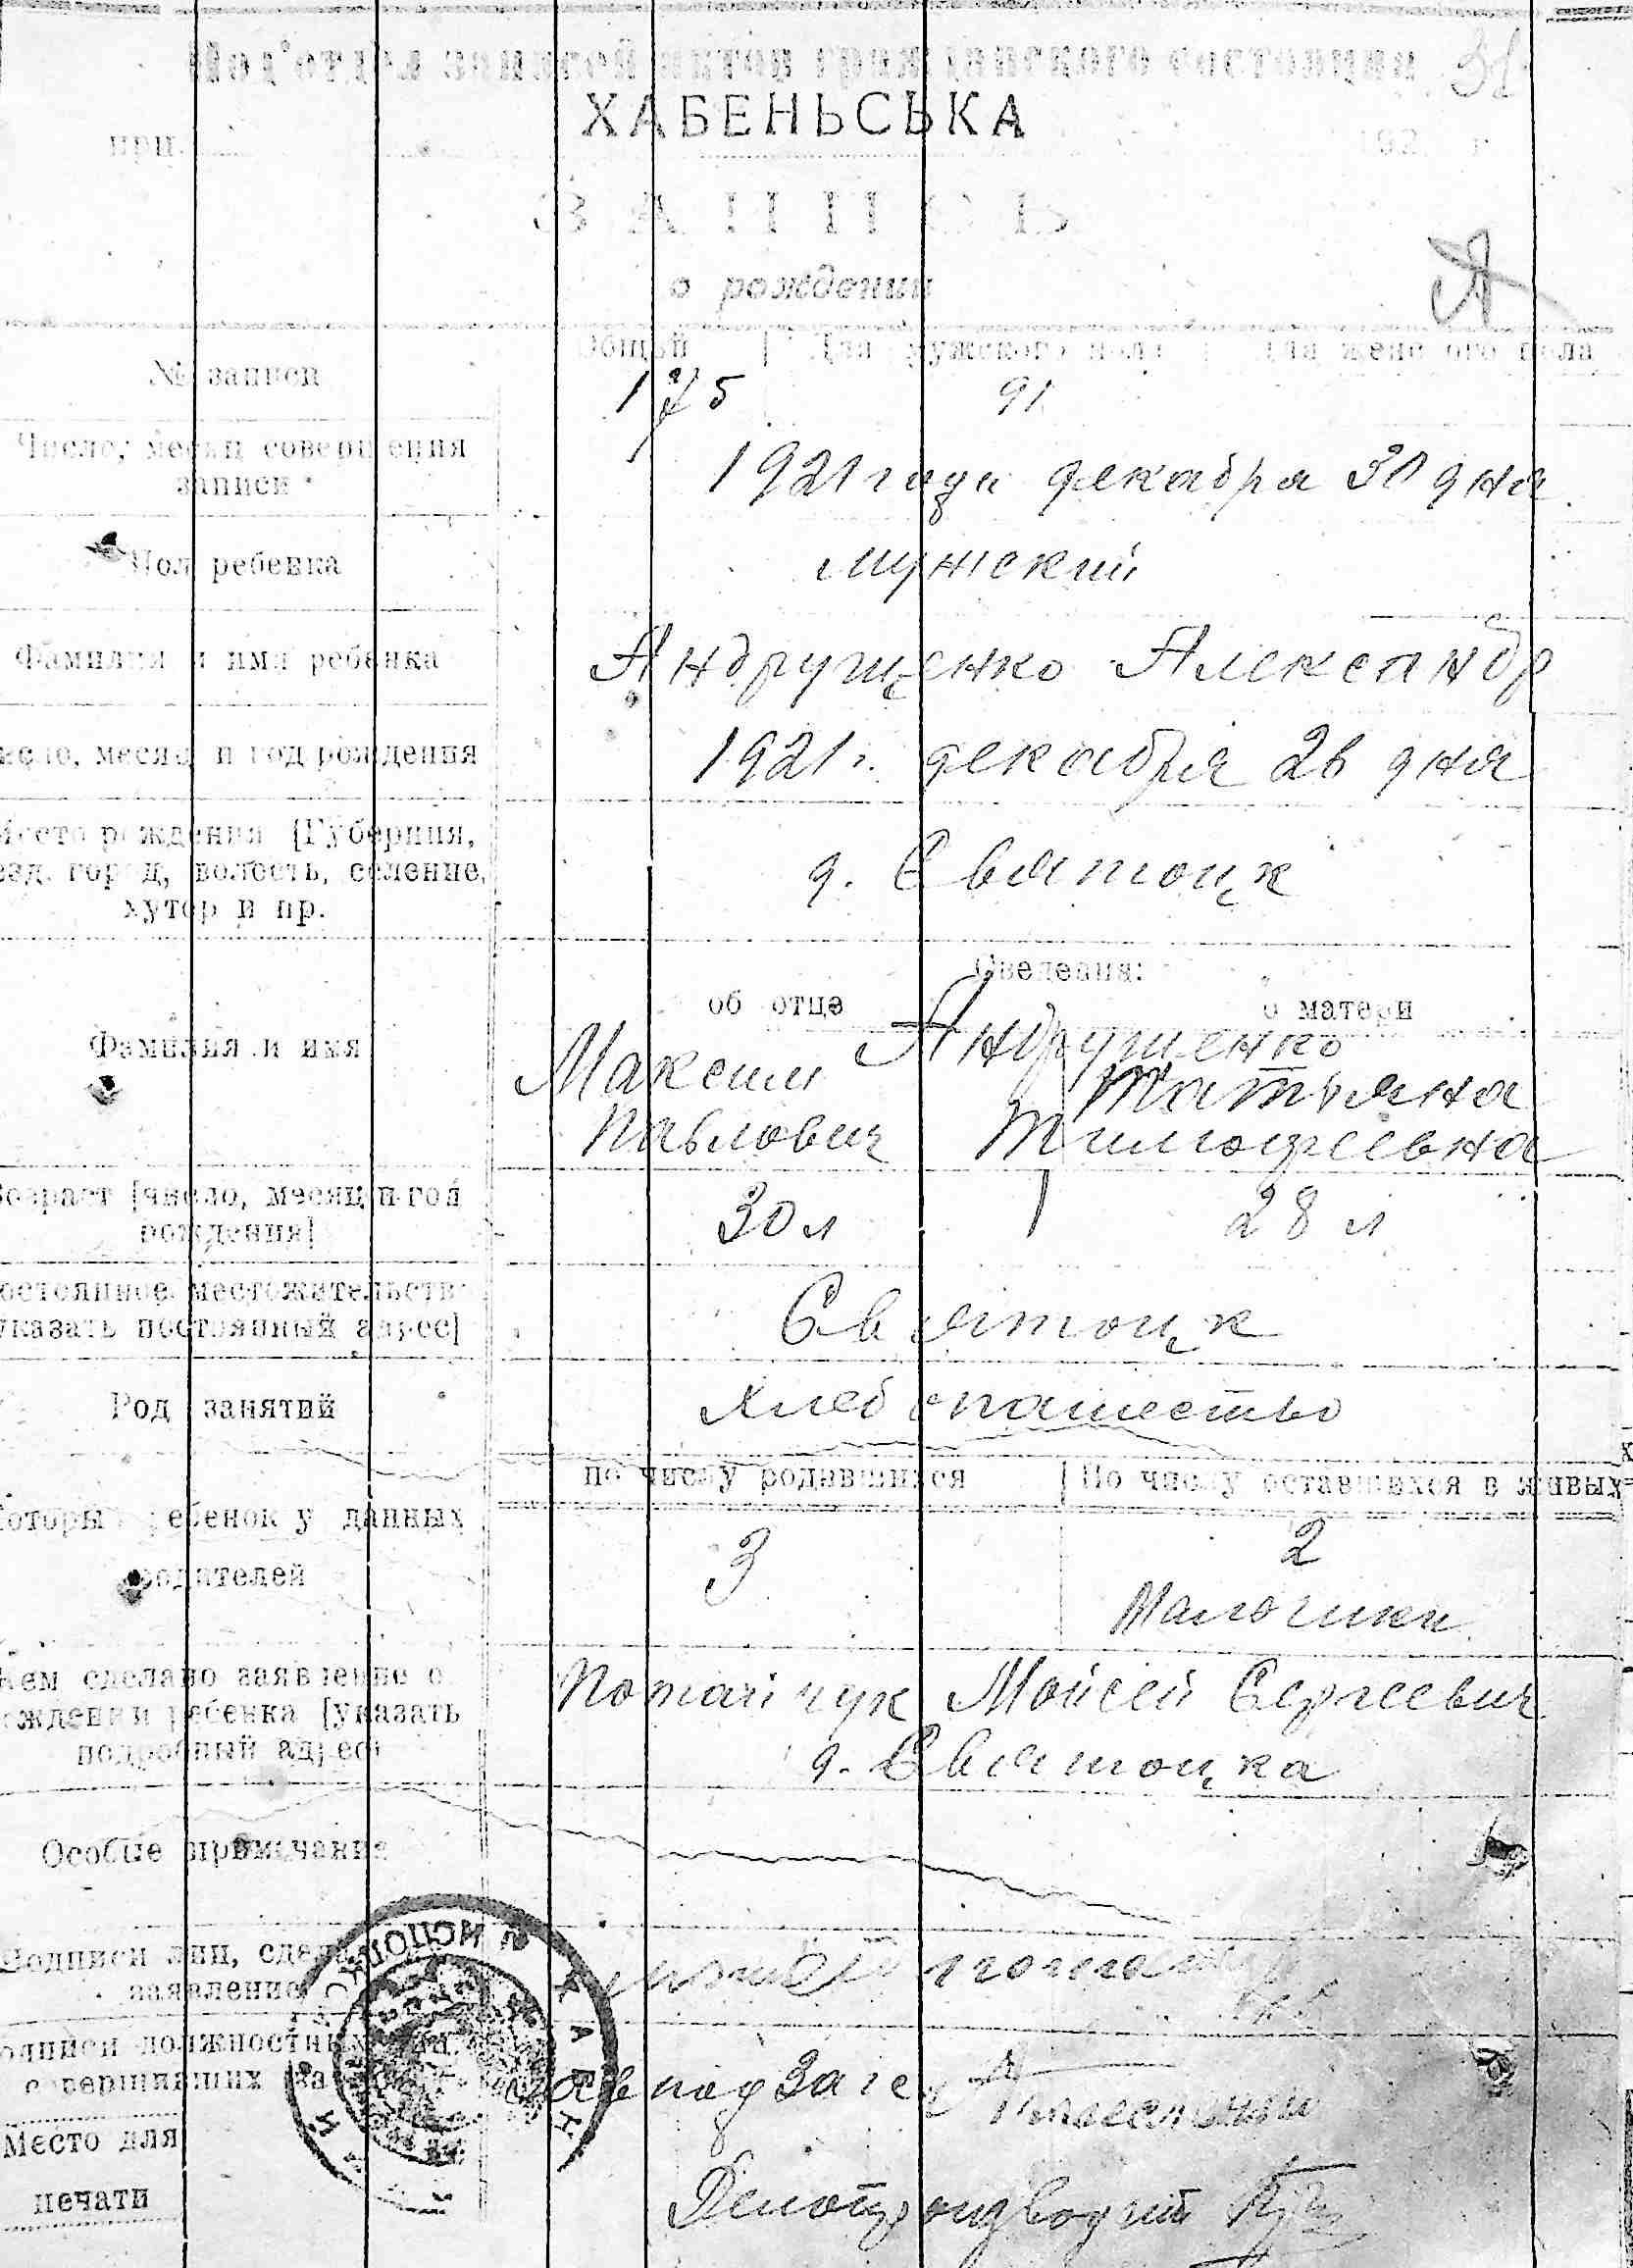 Под'отдел записей актов гражданского состояния 31
ХАБЕНЬСЬКА
при 192 г
ЗАПИСЬ
о рождении
№ записи
Общий Для мужского пола Для женского пола
175 91
Число, месяц совершения
записи
1921 года декабря 30 дня
Пол ребенка
мужский
Фамилия и имя ребенка
Андрущенко Александр
Число, месяц и год рождения
1921 г. декабря 26 дня
Место рождения [Губерния,
уезд, город, волость, селение,
хутор и пр.
д. Святоцк
Сведения:
об отце о матери
Фамилия и имя
Андрущенко
Максим Татьяна
Павлович Тимофеевна
Возраст [число, месяц и год
рождения]
30 л 28 л
Постоянное местожительство
указать постоянный адрес]
Святоцк
Род занятий
хлебопашество
по числу родившихся По числу оставшихся в живых
Который ребенок у данных
родителей
3 2
Мальчики
Кем сделано заявление о
рождении ребенка [указать
подробный адрес]
Потапчук Мойсей Сергеевич
д. Святоцка
Особые примечания
Подписи лиц, сделавших
заявление
Подписи должностных лиц,
совершивших запись
Зав под Загс
Место для
печати
Делопроизводит